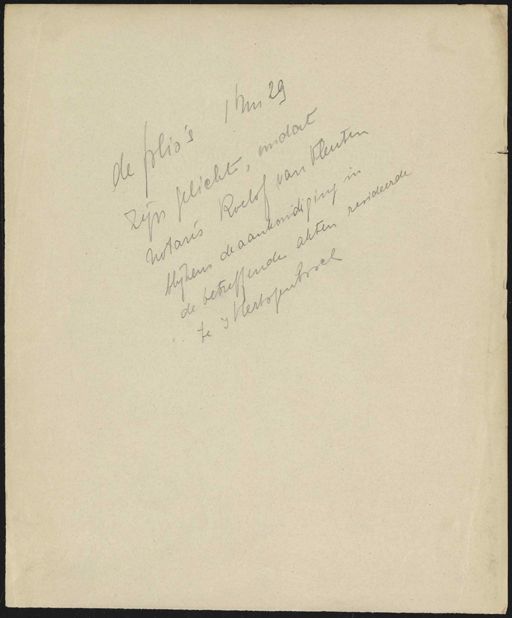 de folio's 1 t/m 29
zijn gelicht, omdat
notaris Roelof van Vleuten
blijkens de aankondiging in
de betreffende akten resideerde
te 's Hertogenbosch